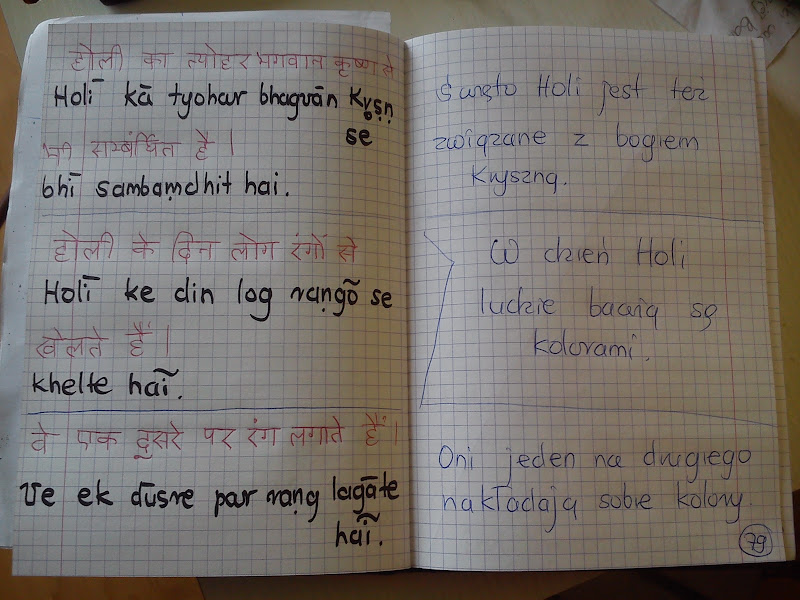 होली का त्योहर भगवान कृष्ण से
Holī kā tyohar bhagvān Kr̥ṣṇ
se
भी सम्बंधित है।
bhī sambaṃdhit hai.
होली के दिन लोग रंगों से
Holī ke din log raṃgõ se
खेलते हैं।
khelte haĩ.
वे एक दूसरे पर रंग लगाते हैं।
Ve ek dūsre par raṃg lagāte
haĩ.
Święto Holi jest też
związane z bogiem
Kryszną.
W dzień Holi
ludzie bawią się
kolorami.
Oni jeden na drugiego
nakładają sobie kolory.
79